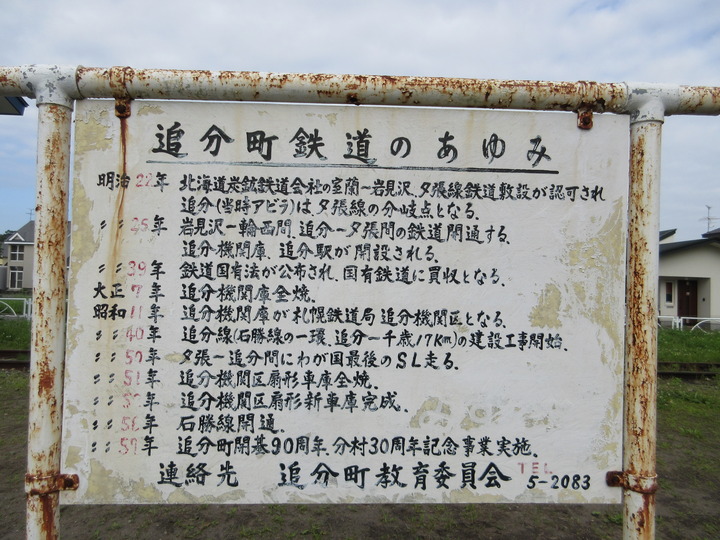 追分町鉄道のあゆみ
明治22年 北海道炭鉱鉄道会社の室蘭〜岩見沢、夕張線鉄道敷設が認可され
追分(当時アビラ)は、夕張線の分岐点となる。
〃 〃 25年 岩見沢ー輪西間、追分ー夕張間の鉄道開通する。
追分機関庫、追分駅が開設される。
〃 〃 39年 鉄道国有法が公布され、国有鉄道に買収となる。
大正 7年 追分機関庫全焼。
昭和 11年 追分機関庫が札幌鉄道局 追分機関区となる。
〃 〃 40年 追分線(石勝線の一環、追分〜千歳17Km)の建設工事開始、
〃 〃 50年 夕張〜追分間にわが国最後のSL走る。
〃 〃 51年 追分機関区扇形車庫全焼。
〃 〃 年 追分機関区扇形新車庫完成。
〃 〃 56年 石勝線開通。
〃 〃 57年 追分町開基90周年、分村30周年記念事業実施、
連絡先 追分町教育委員会 TEL 5-2083